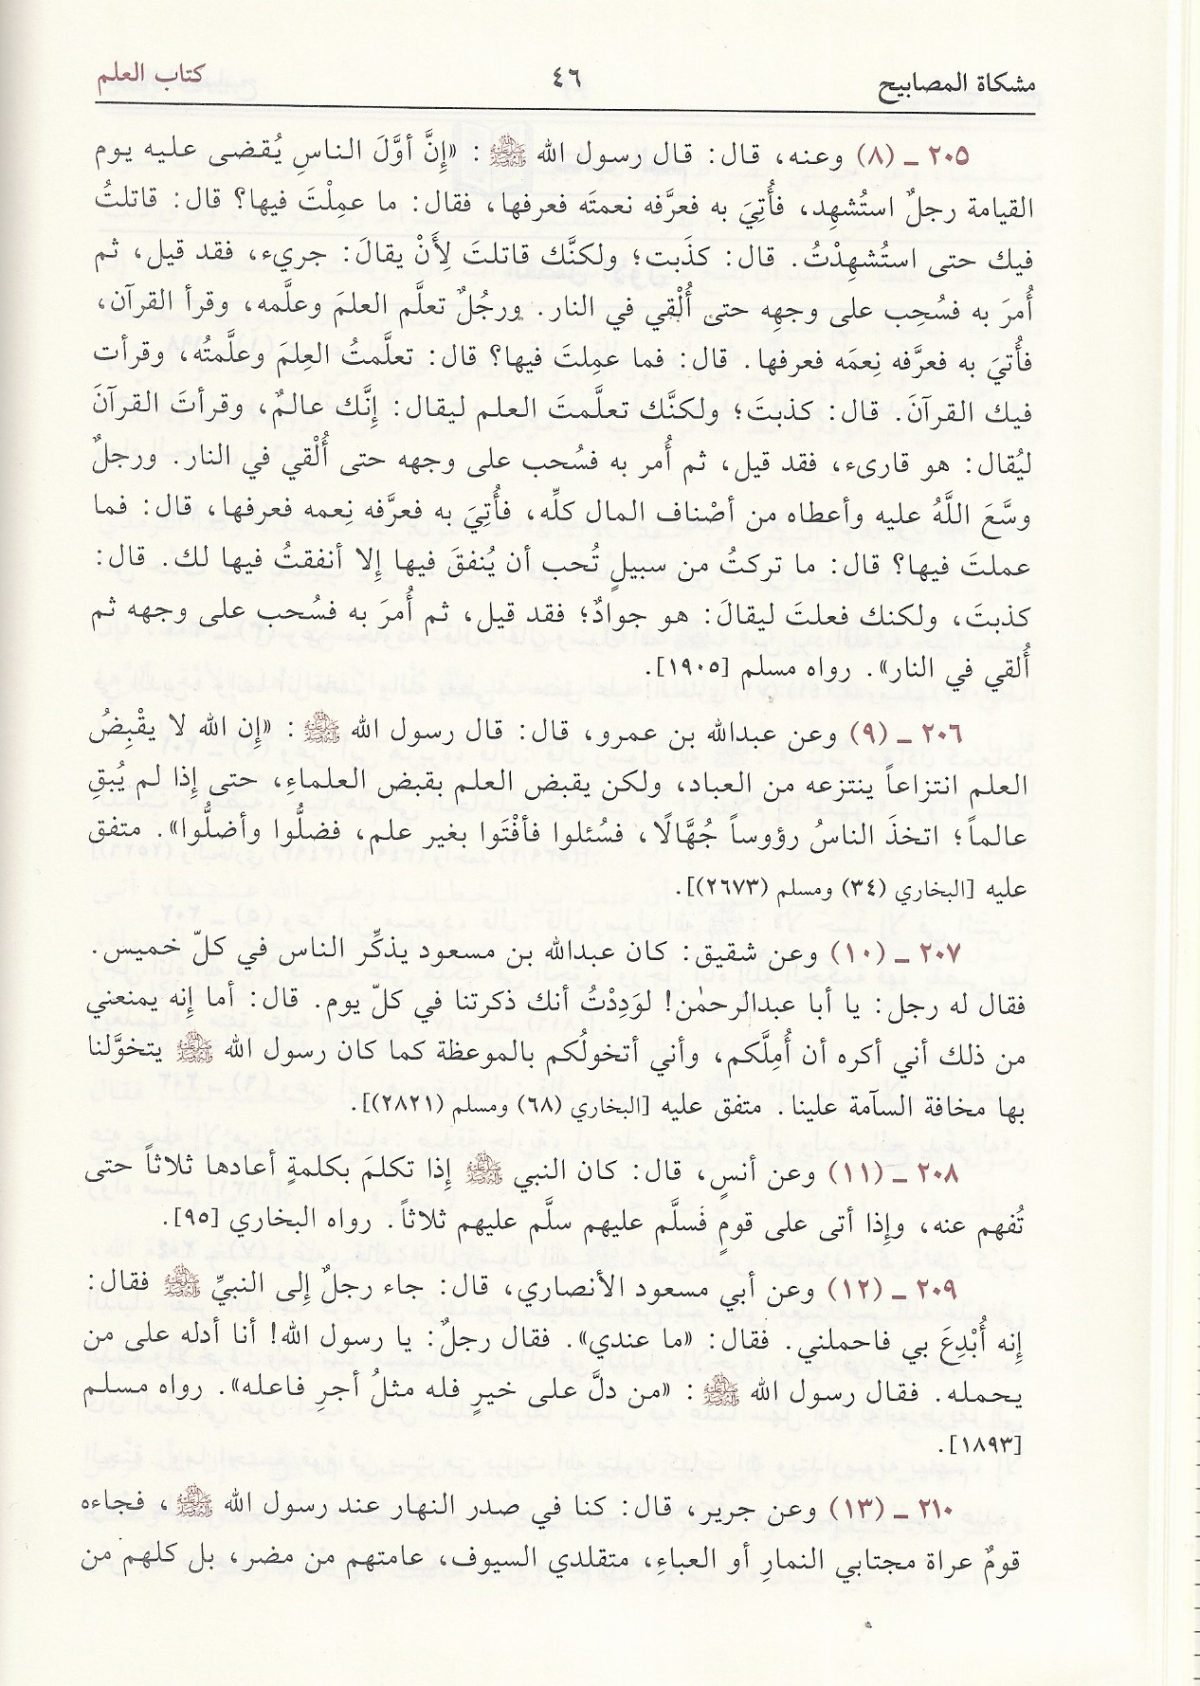 مشكاة المصابيح ٤٦ كتاب العلم
٢٠٥ ـ (٨) وعنه، قال: قال رسول الله ﷺ: «إِنَّ أوَّلَ الناسِ يُقضى عليه يوم
القيامة رجلٌ استُشهِد، فأُتِيَ به فعرَّفه نعمتَه فعرفها، فقال: ما عمِلْتَ فيها؟ قال: قاتلتُ
فيك حتى استُشهِدْتُ. قال: كذَبت؛ ولكنَّك قاتلتَ لِأَنْ يقالَ: جريء، فقد قيل، ثم
أُمرَ به فسُحِب على وجهِه حتى أُلْقي في النار. ورجُلٌ تعلَّم العلمَ وعلَّمه، وقرأ القرآن،
فأُتيَ به فعرَّفه نِعمَه فعرفها. قال: فما عمِلتَ فيها؟ قال: تعلَّمتُ العِلمَ وعلَّمتُه، وقرأت
فيك القرآنَ. قال: كذبتَ؛ ولكنَّك تعلَّمتَ العلم ليقال: إِنَّك عالمٌ، وقرأتَ القرآنَ
ليُقال: هو قارىء، فقد قيل، ثم أُمر به فسُحب على وجهه حتى أُلْقي في النار. ورجلٌ
وسَّعَ اللَّهُ عليه وأعطاه من أصْناف المال كلِّه، فأُتِيَ به فعرَّفه نِعمه فعرفها، قال: فما
عملتَ فيها؟ قال: ما تركتُ من سبيلٍ تُحب أن يُنفقَ فيها إِلا أنفقتُ فيها لك. قال:
كذبتَ، ولكنك فعلتَ ليقالَ: هو جوادٌ؛ فقد قيل، ثم أُمرَ به فسُحب على وجهه ثم
أُلقي في النار». رواه مسلم [١٩٠٥].
٢٠٦ ـ (٩) وعن عبدالله بن عمرو، قال: قال رسول الله ﷺ: «إِن الله لا يقْبِضُ
العلم انتزاعاً ينتزعه من العباد، ولكن يقبض العلم بقبض العلماءِ، حتى إِذا لم يُبقِ
عالماً؛ اتخذَ الناسُ رؤوساً جُهَّالًا، فسُئلوا فأفْتَوا بغير علم، فضلُّوا وأضلُّوا». متفق
عليه [البخاري (٣٤) ومسلم (٢٦٧٣)].
٢٠٧ ـ (١٠) وعن شقيق: كان عبدالله بن مسعود يذكِّر الناس في كلّ خميس.
فقال له رجل: يا أبا عبدالرحمٰن! لوَدِدْتُ أنك ذكرتنا في كلّ يوم. قال: أما إِنه يمنعني
من ذلك أني أكره أن أُمِلَّكم، وأني أتخولُكم بالموعظة كما كان رسول الله ﷺ يتخوَّلنا
بها مخافة السآمة علينا. متفق عليه [البخاري (٦٨) ومسلم (٢٨٢١)].
٢٠٨ ـ (١١) وعن أنسٍ، قال: كان النبي ﷺ إِذا تكلمَ بكلمةٍ أعادها ثلاثاً حتى
تُفهم عنه، وإِذا أتى على قومٍ فَسلَّم عليهم سلَّم عليهم ثلاثاً. رواه البخاري [٩٥].
٢٠٩ ـ (١٢) وعن أبي مسعود الأنصاري، قال: جاء رجلٌ إِلى النبيِّ ﷺ فقال:
إِنه أُبْدِعَ بي فاحملني. فقال: «ما عندي». فقال رجلٌ: يا رسول الله! أنا أدله على من
يحمله. فقال رسول الله ﷺ: «من دلَّ على خيرٍ فله مثلُ أجرِ فاعله». رواه مسلم
[١٨٩٣].
٢١٠ ـ (١٣) وعن جرير، قال: كنا في صدر النهار عند رسول الله ﷺ، فجاءه
قومٌ عراة مجتابي النمارِ أو العباءِ، متقلدي السيوف، عامتهم من مضر، بل كلهم من